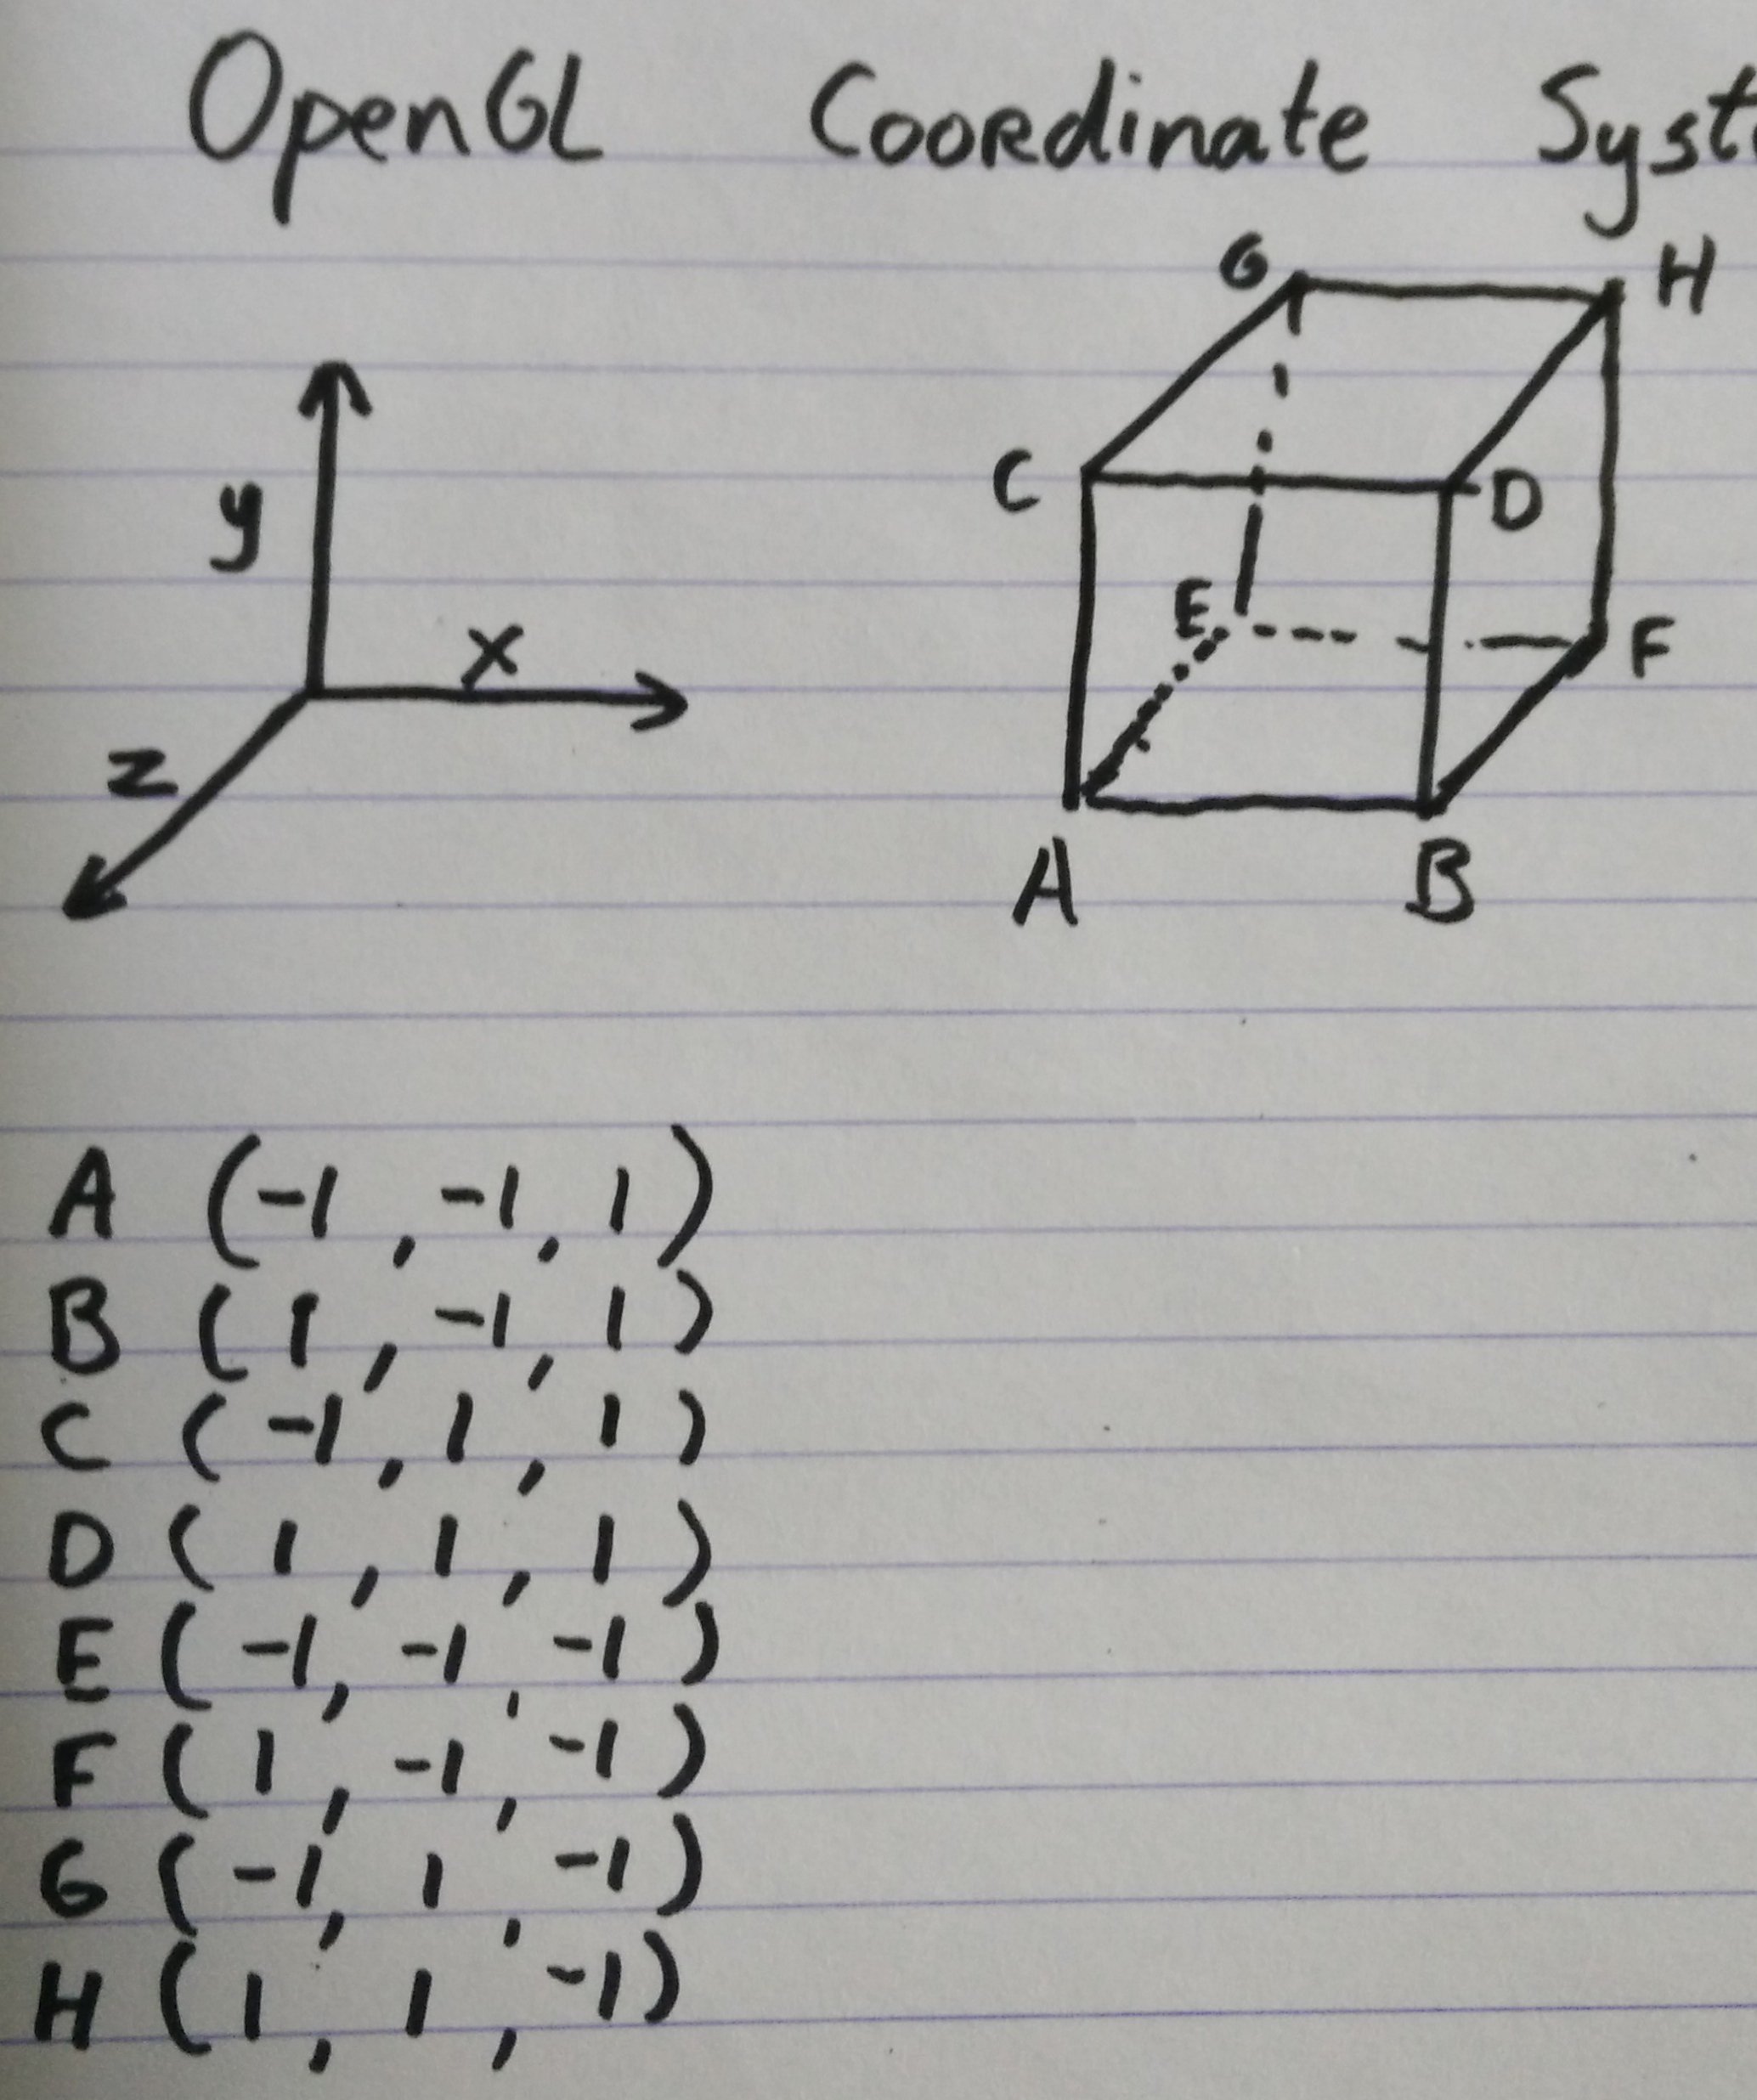 OpenGL Coordinate Syst
G H
y
C D
x
E F
z
A B
A (-1, -1, 1)
B (1, -1, 1)
C (-1, 1, 1)
D (1, 1, 1)
E (-1, -1, -1)
F (1, -1, -1)
G (-1, 1, -1)
H (1, 1, -1)